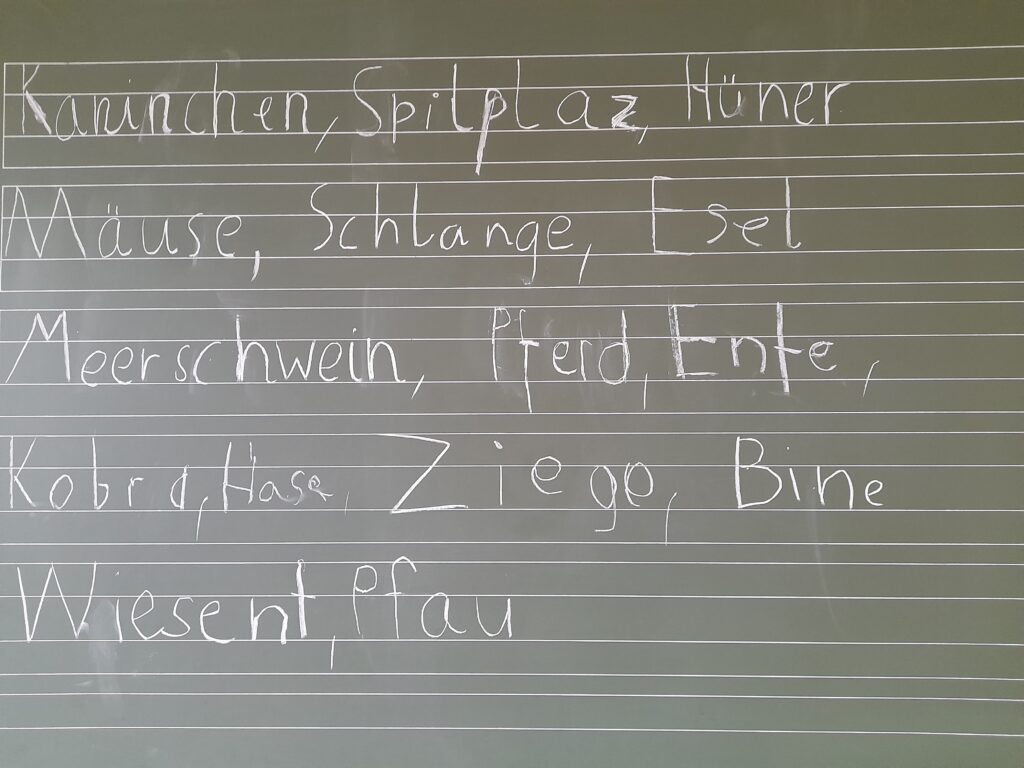 Kaninchen, Spilplaz, Hüner
Mäuse, Schlange, Esel
Meerschwein, Pferd, Ente,
Kobra, Hase, Ziege, Bine
Wiesent, Pfau